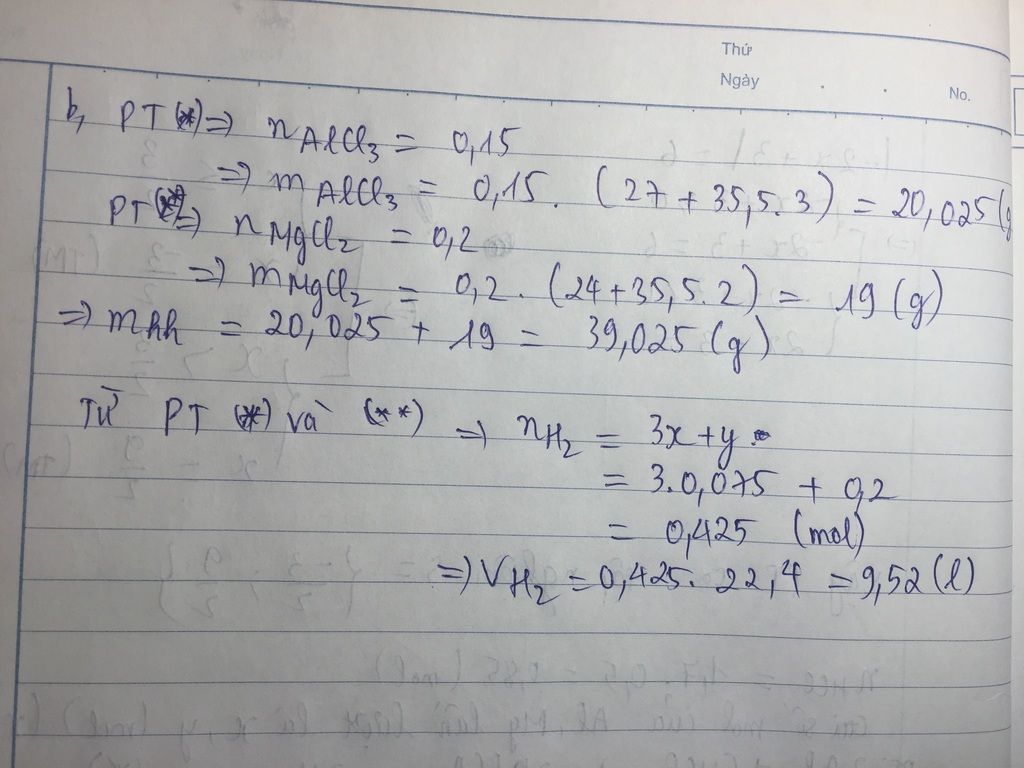 Thứ
Ngày
No.
b, PT (*) => nAlCl3 = 0,15
=> mAlCl3 = 0,15. (27 + 35,5.3) = 20,025 (g
PT (**) => nMgCl2 = 0,2
=> mMgCl2 = 0,2. (24+35,5.2) = 19 (g)
=> mhh = 20,025 + 19 = 39,025 (g)
Từ PT (*) và (**) => nH2 = 3x+y
= 3.0,075 + 0,2
= 0,425 (mol)
=> VH2 = 0,425. 22,4 = 9,52 (l)